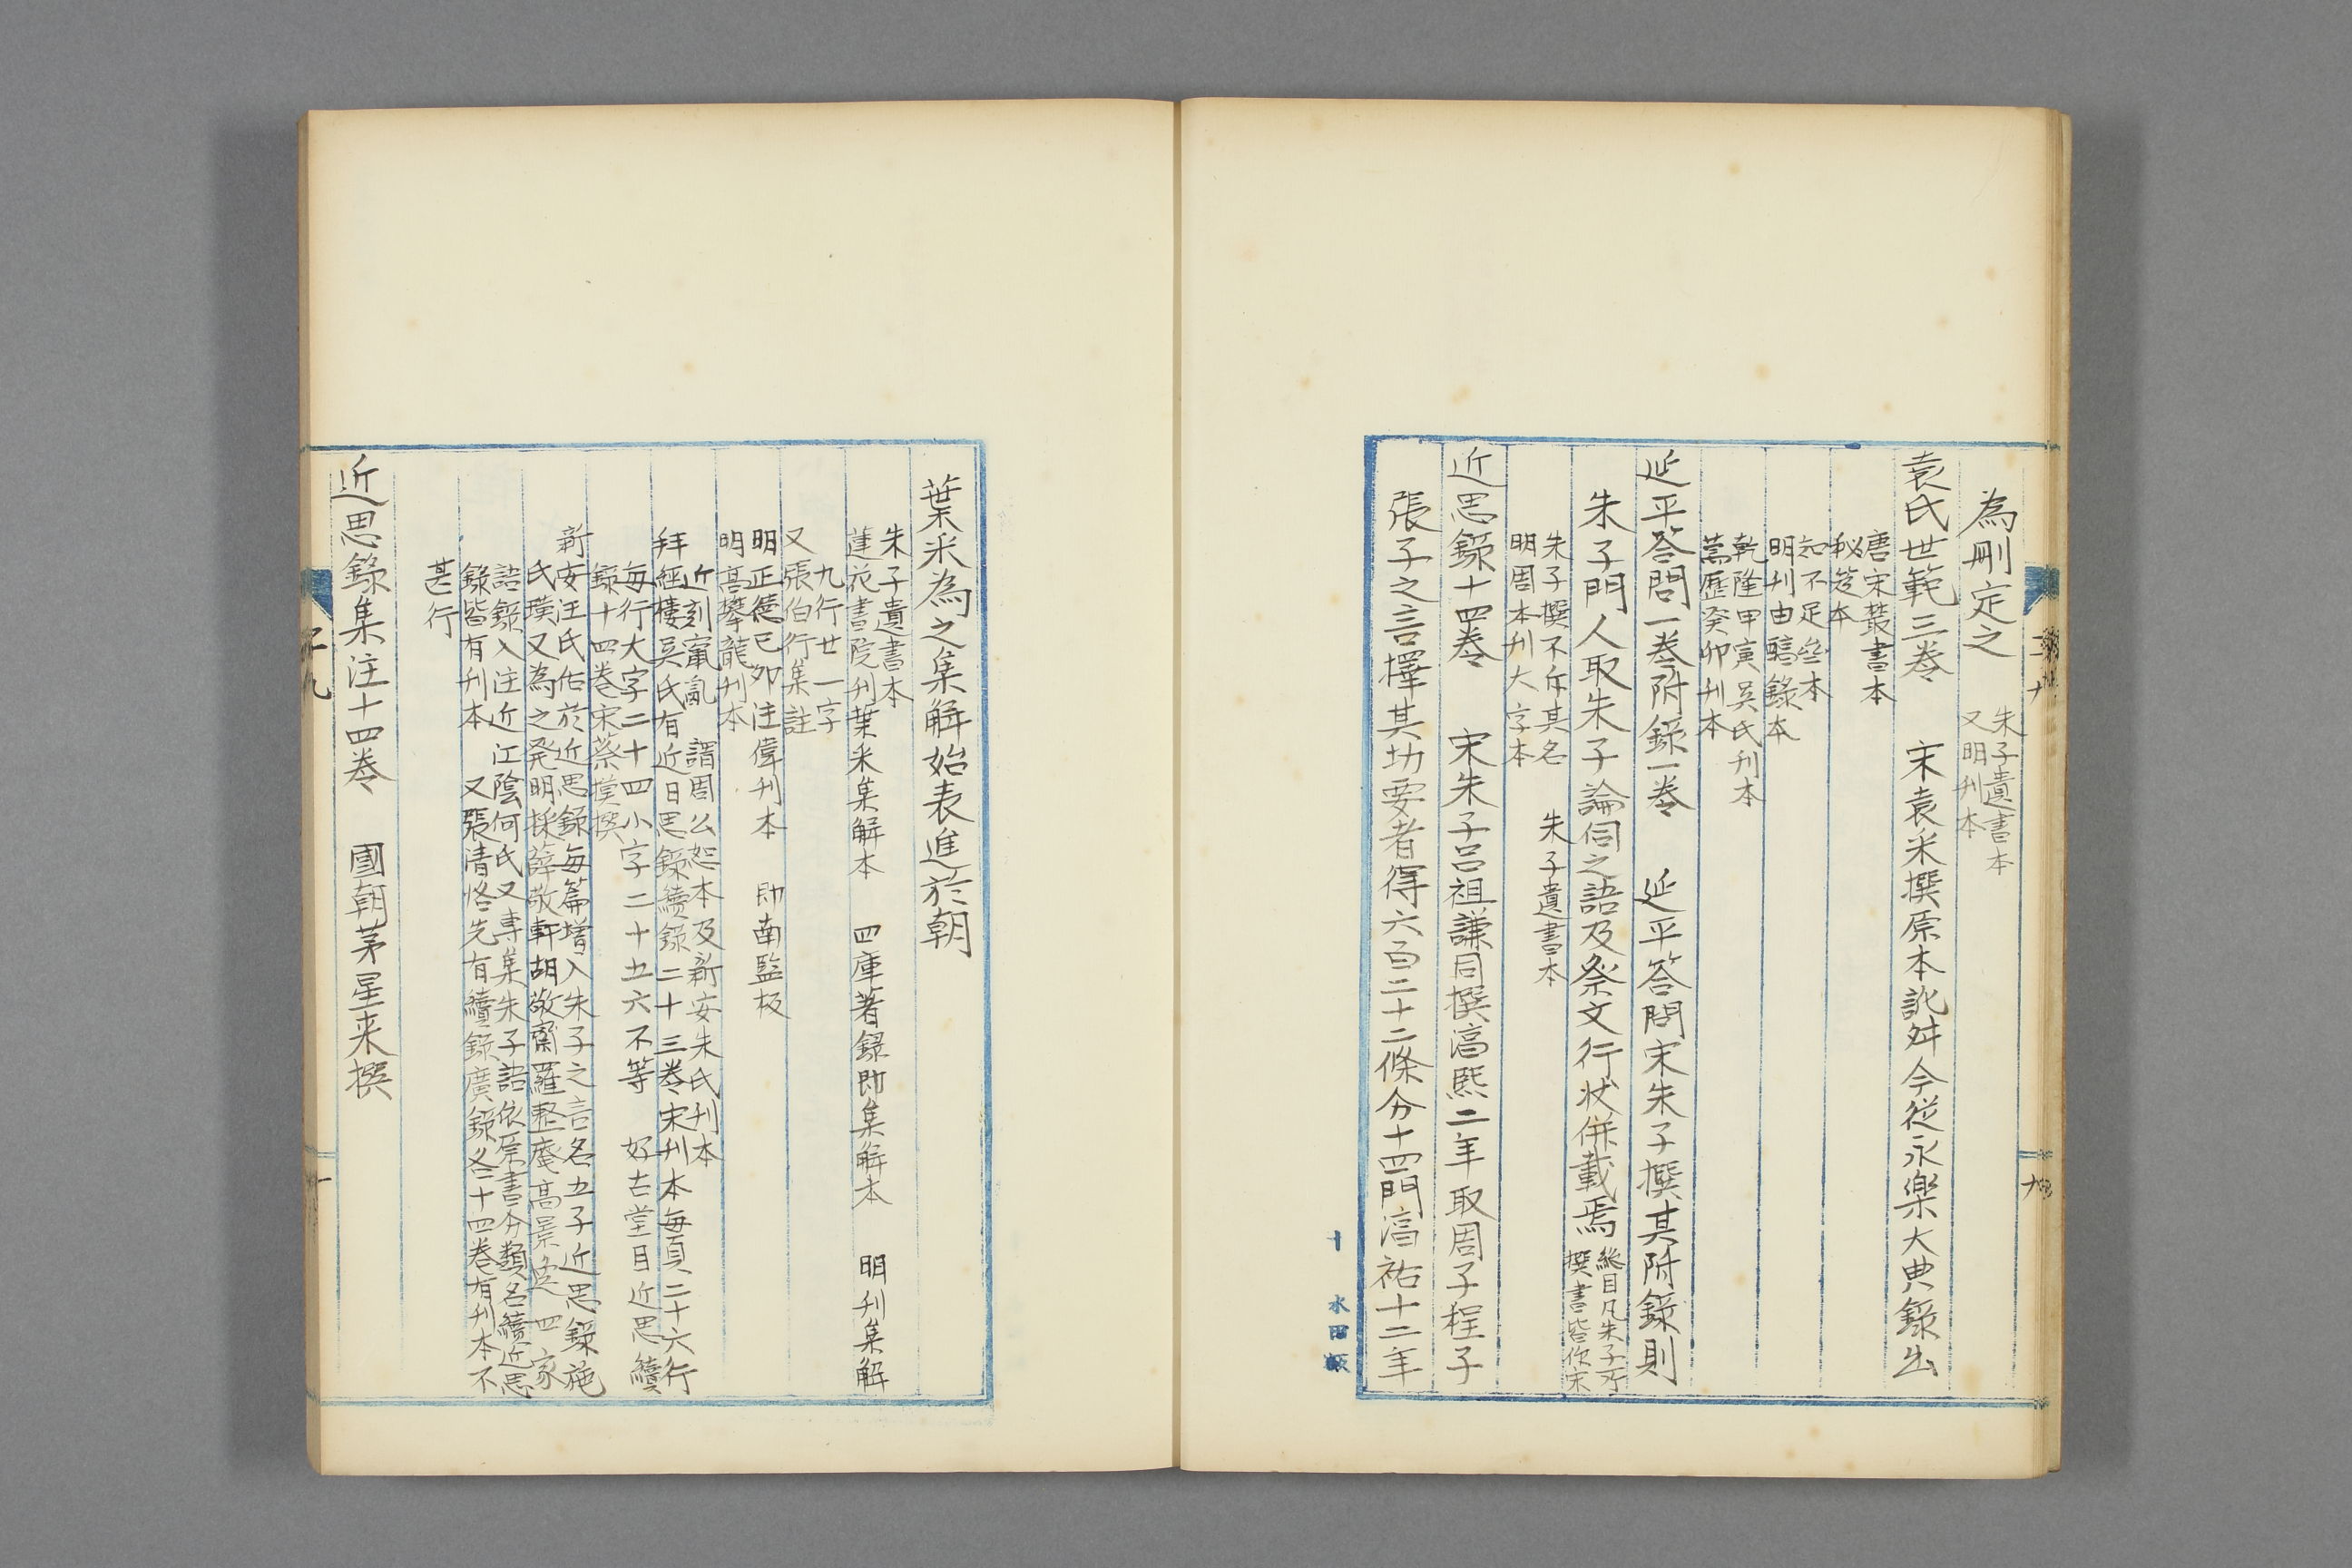 為刪定之
朱子遺書本
又明刊本
袁氏世範三卷 宋袁采撰原本訛舛今従永樂大典錄出
唐宋叢書本
秘笈本
知不足齋本
明刊由醇錄本
乾隆甲寅吳氏刊本
萬歷癸卯刊本
延平答問一卷附錄一卷 延平答問宋朱子撰其附錄則
朱子門人取朱子論侗之語及祭文行状併載焉
総目凡朱子所
撰書皆作宋
朱子撰不斥其名 朱子遺書本
明周本刊大字本
近思錄十四卷 宋朱子呂祖謙同撰淳熙二年取周子程子
張子之言擇其切要者得六百二十二條分十四門淳祐十二年
十
水田版
葉采為之集解始表進於朝
朱子遺書本
蓮花書院刊葉采集解本 四庫著錄即集解本 明刊集解
九行廿一字
又張伯行集註
明正德己卯汪偉刊本 即南監板
明高攀龍刊本
近刻竄亂 謂周公恕本及新安朱氏刊本
拜經樓吳氏有近日思錄續錄二十三卷宋刊本每頁二十六行
每行大字二十四小字二十五六不等 好古堂目近思續
錄十四卷宋蔡模撰
新安汪氏佑於近思錄每篇增入朱子之言名五子近思錄施
氏璜又為之発明採薛敬軒胡敬齋羅整庵高景逸四家
語錄入注近江陰何氏又專集朱子語依原書分類名續近思
錄皆有刊本 又張清恪先有續錄廣錄各十四卷有刊本不
甚行
近思錄集注十四卷 國朝茅星来撰
子九